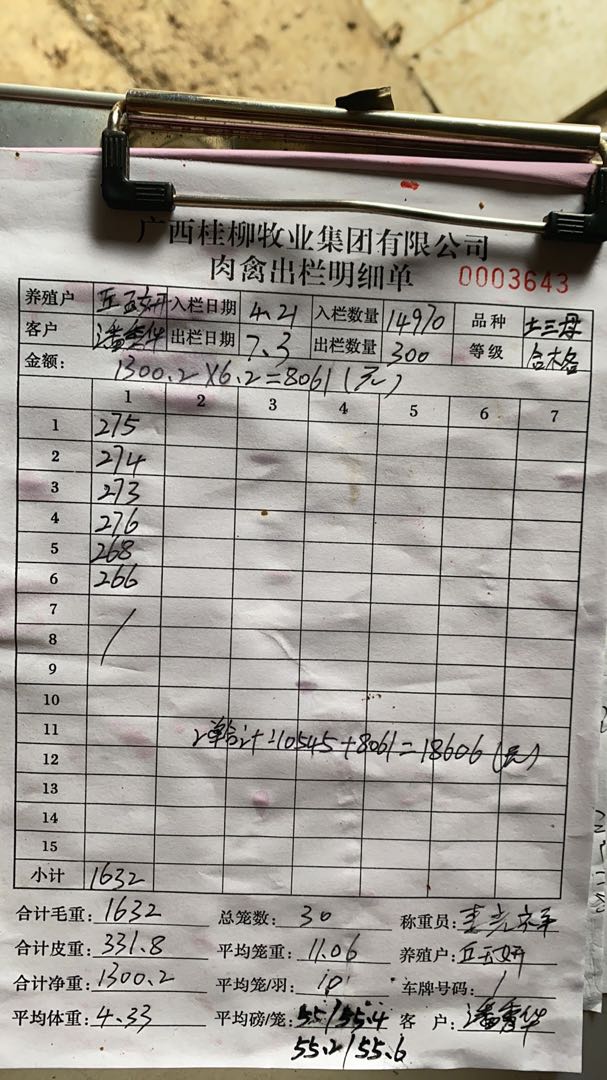 广西桂柳牧业集团有限公司
肉禽出栏明细单 0003643
养殖户 丘玉妍 入栏日期 4.21 入栏数量 14970 品种 土三母
客户 潘秀华 出栏日期 7.3 出栏数量 300 等级 合格
金额: 1300.2×6.2=8061(元)
1 2 3 4 5 6 7
1 275
2 274
3 273
4 276
5 268
6 266
7
8 /
9
10
11 2单合计:10545+8061=18606(元)
12
13
14
15
小计 1632
合计毛重: 1632 总笼数: 30 称重员:
合计皮重: 331.8 平均笼重: 11.06 养殖户: 丘玉妍
合计净重: 1300.2 平均笼/羽: 10 车牌号码: /
平均体重: 4.33 平均磅/笼: 55/55.4 客户: 潘秀华
55.2/55.6